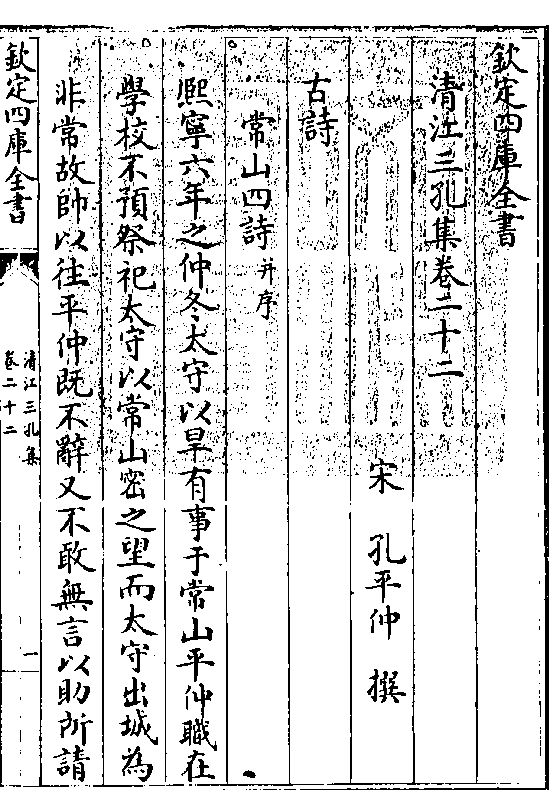 欽定四庫全書
清江三孔集卷二十二
宋　孔平仲　撰
古詩
常山四詩并序
熙寧六年之仲冬太守以旱有事于常山平仲職在
學校不預祭祀太守以常山密之望而太守出城為
非常故帥以往平仲既不辭又不敢無言以助所請
欽定四庫全書
清江三孔集
卷二十二
一